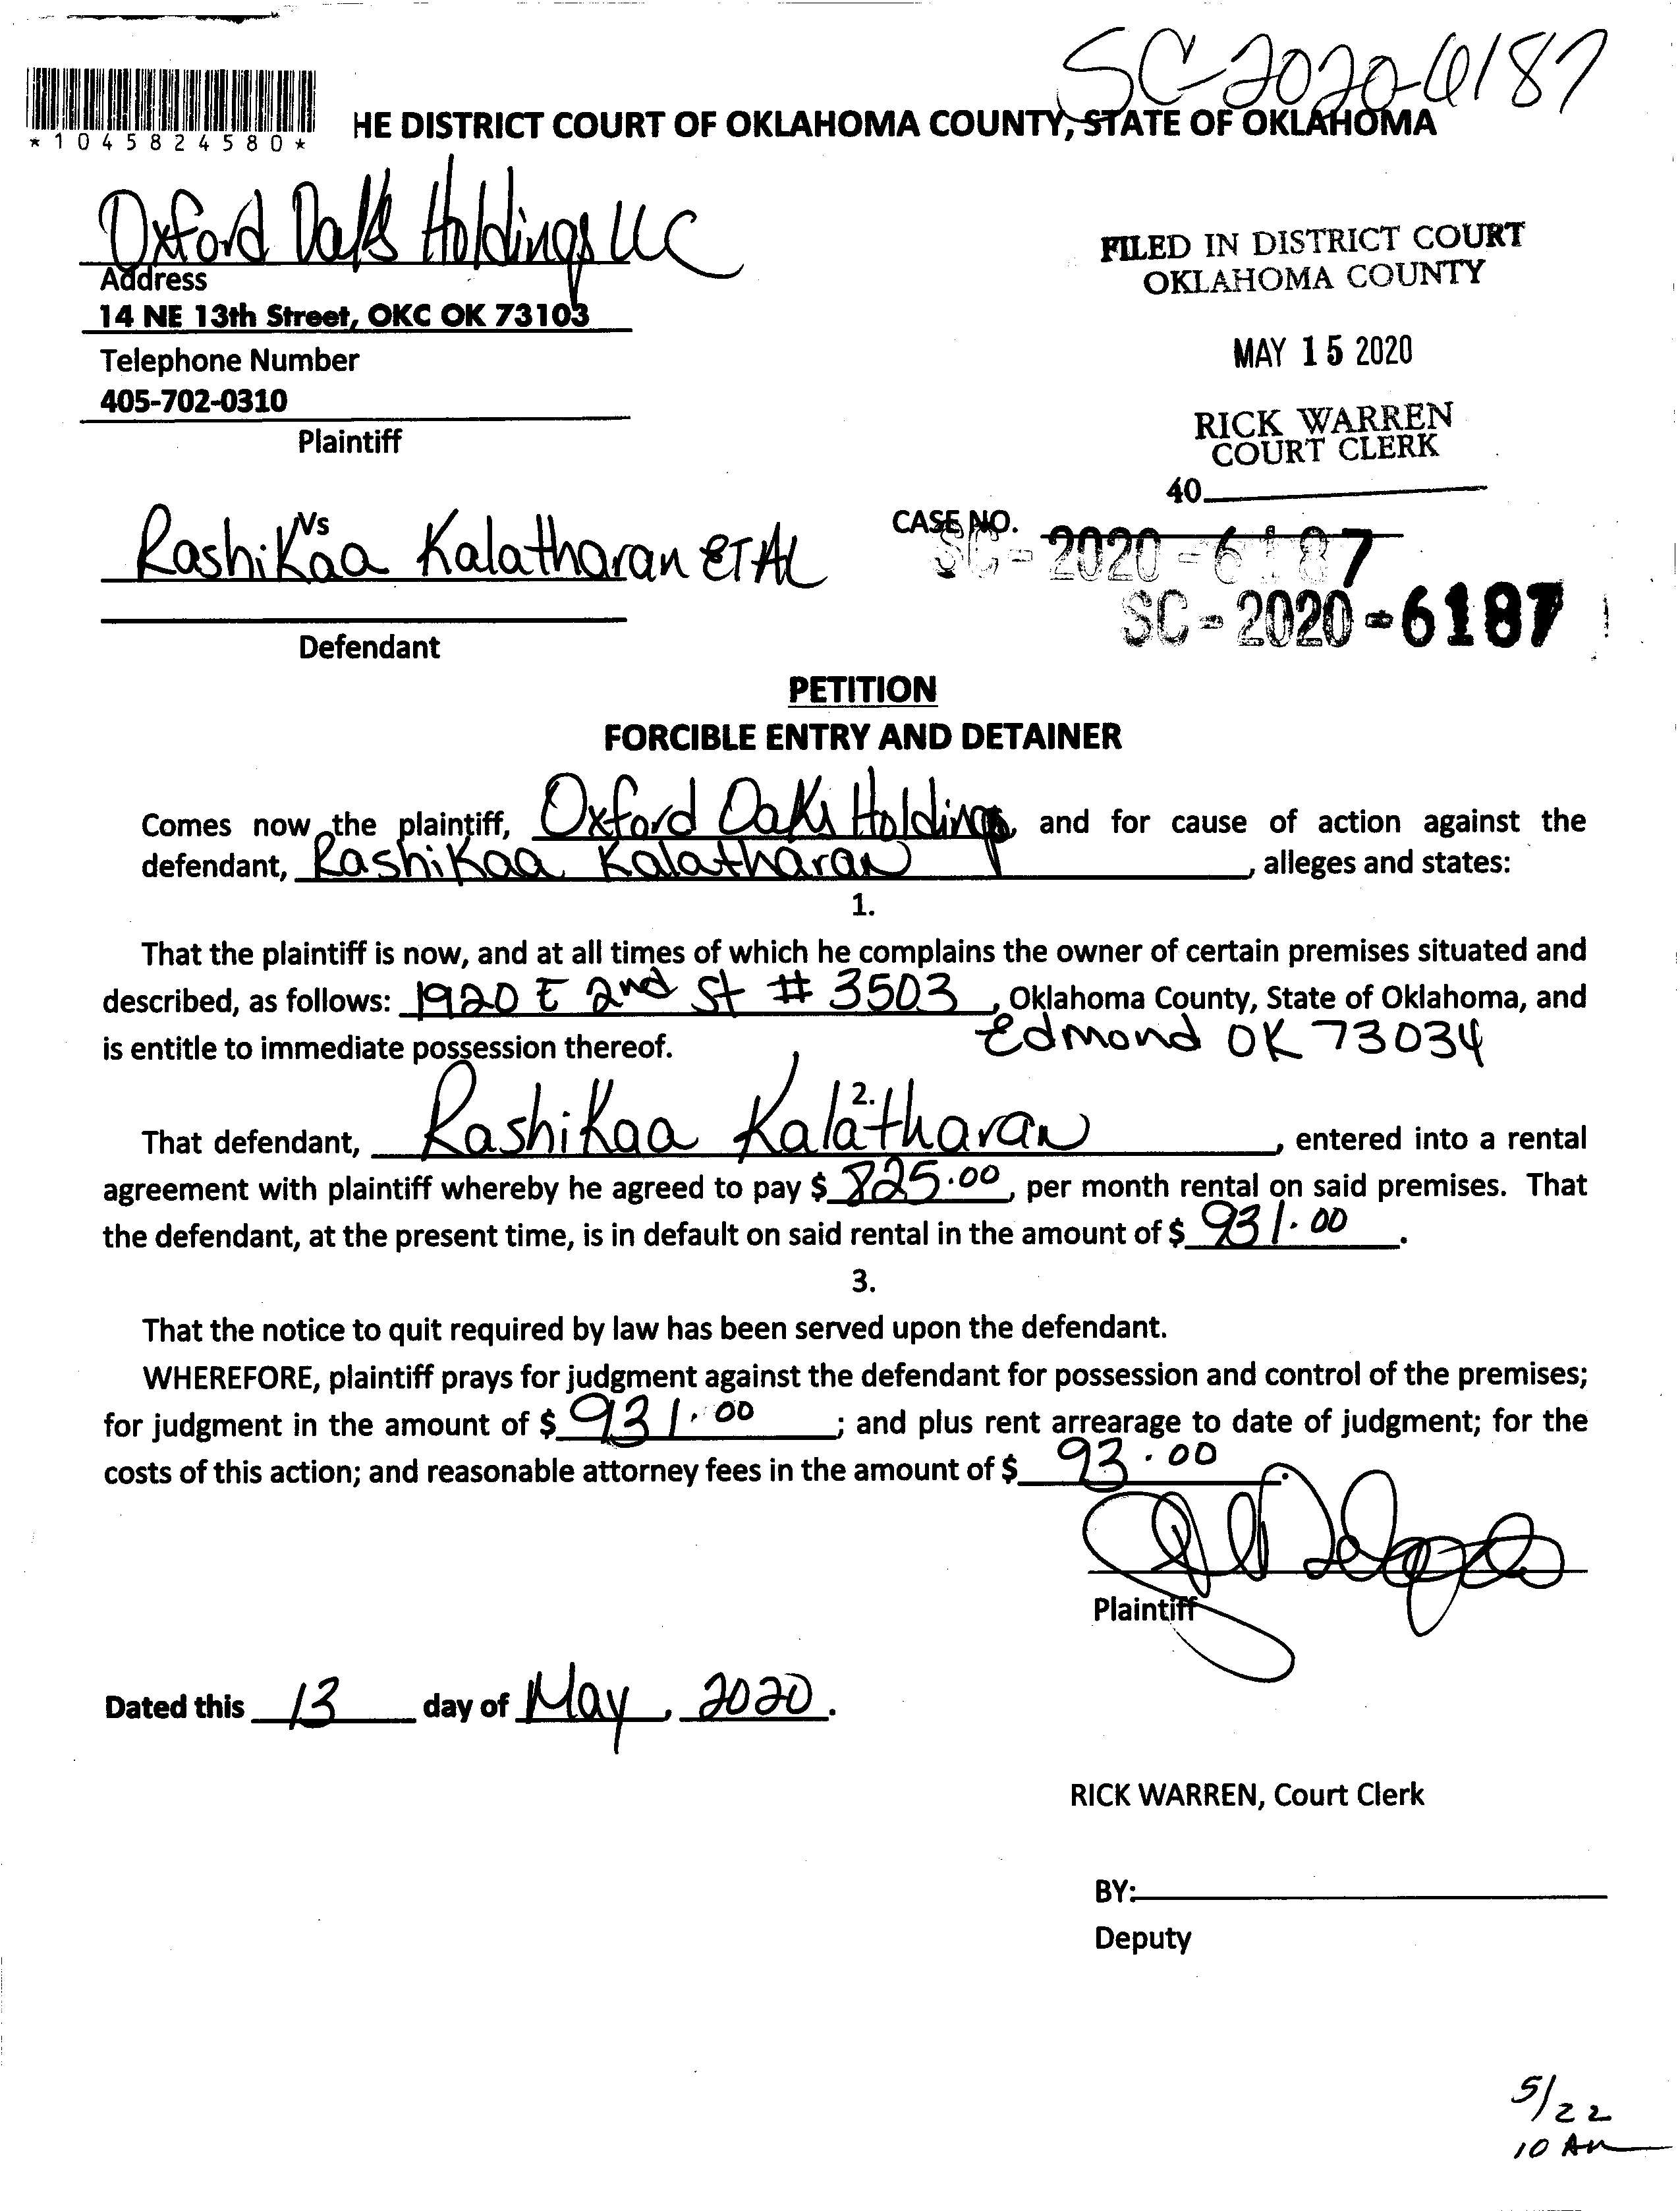 SC-2020-6187
*1045824580*
HE DISTRICT COURT OF OKLAHOMA COUNTY, STATE OF OKLAHOMA
Oxford Oaks Holdings LLC
Address
14 NE 13th Street, OKC OK 73103
Telephone Number
405-702-0310
Plaintiff
FILED IN DISTRICT COURT
OKLAHOMA COUNTY
MAY 15 2020
RICK WARREN
COURT CLERK
40
Vs
Rashikaa Kalatharan ET AL
Defendant
CASE NO.
SC-2020-6187
SC-2020-6187
PETITION
FORCIBLE ENTRY AND DETAINER
Comes now the plaintiff, Oxford Oaks Holdings, and for cause of action against the
defendant, Rashikaa Kalatharan, alleges and states:
1.
That the plaintiff is now, and at all times of which he complains the owner of certain premises situated and
described, as follows: 1920 E 2nd St # 3503, Oklahoma County, State of Oklahoma, and
is entitle to immediate possession thereof. Edmond OK 73034
2.
That defendant, Rashikaa Kalatharan, entered into a rental
agreement with plaintiff whereby he agreed to pay $ 825.00, per month rental on said premises. That
the defendant, at the present time, is in default on said rental in the amount of $ 931.00.
3.
That the notice to quit required by law has been served upon the defendant.
WHEREFORE, plaintiff prays for judgment against the defendant for possession and control of the premises;
for judgment in the amount of $ 931.00; and plus rent arrearage to date of judgment; for the
costs of this action; and reasonable attorney fees in the amount of $ 93.00.
Plaintiff
Dated this 13 day of May, 2020.
RICK WARREN, Court Clerk
BY:
Deputy
5/22
10 AM